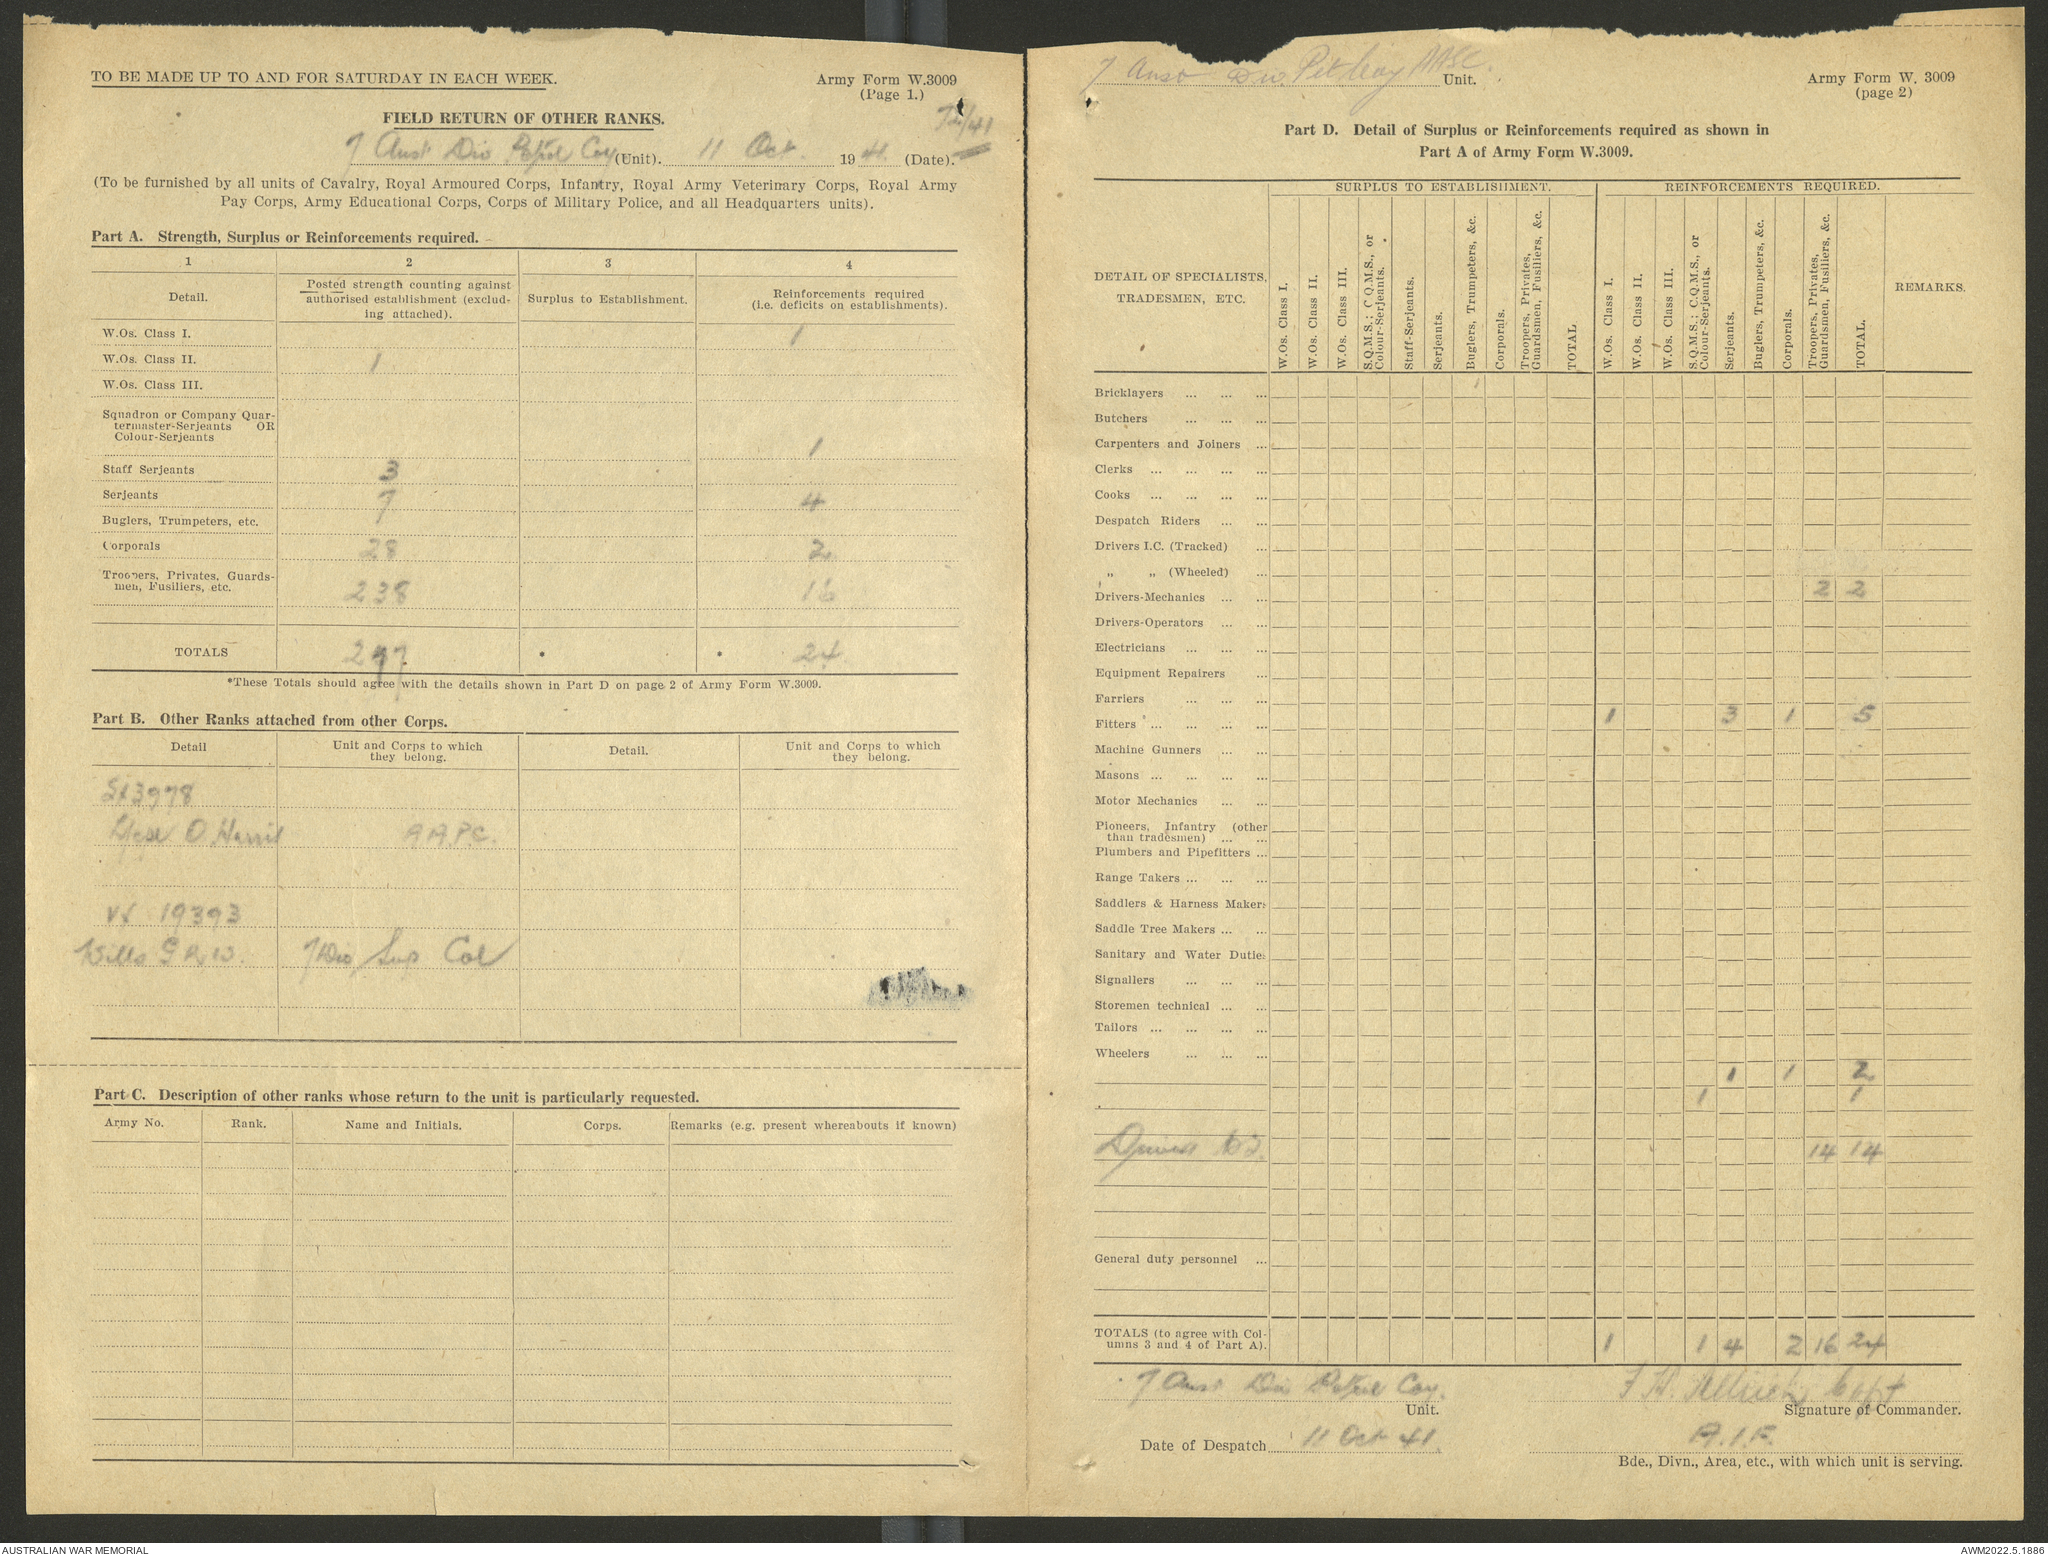 TO BE MADE UP TO AND FOR SATURDAY IN EACH WEEK.
Army Form W.3009
(Page 1.)
72/41
FIELD RETURN OF OTHER RANKS.
7 Aust Div Petrol Coy (Unit). 11 Oct. 1941. (Date).
(To be furnished by all units of Cavalry, Royal Armoured Corps, Infantry, Royal Army Veterinary Corps, Royal Army
Pay Corps, Army Educational Corps, Corps of Military Police, and all Headquarters units).
Part A. Strength, Surplus or Reinforcements required.
1 2 3 4
Detail.
Posted strength counting against
authorised establishment (exclud-
ing attached).
Surplus to Establishment.
Reinforcements required
(i.e. deficits on establishments).
W.Os. Class I. 1
W.Os. Class II. 1
W.Os. Class III.
Squadron or Company Quar-
termaster-Serjeants OR
Colour-Serjeants 1
Staff Serjeants 3
Serjeants 7 4
Buglers, Trumpeters, etc.
Corporals 28 2
Troopers, Privates, Guards-
men, Fusiliers, etc. 238 16
TOTALS 277 * * 24
*These Totals should agree with the details shown in Part D on page 2 of Army Form W.3009.
Part B. Other Ranks attached from other Corps.
Detail
Unit and Corps to which
they belong.
Detail.
Unit and Corps to which
they belong.
SX3978
O. Harris A.A.P.C.
VX 19393
Wills G.R.W. 7 Div Sup Col
Part C. Description of other ranks whose return to the unit is particularly requested.
Army No. Rank. Name and Initials. Corps. Remarks (e.g. present whereabouts if known)
7 Aust Div Pet Coy AASC. Unit.
Army Form W. 3009
(page 2)
Part D. Detail of Surplus or Reinforcements required as shown in
Part A of Army Form W.3009.
SURPLUS TO ESTABLISHMENT. REINFORCEMENTS REQUIRED.
DETAIL OF SPECIALISTS,
TRADESMEN, ETC.
W.Os. Class I.
W.Os. Class II.
W.Os. Class III.
S.Q.M.S.; C.Q.M.S., or
Colour-Serjeants.
Staff-Serjeants.
Serjeants.
Buglers, Trumpeters, &c.
Corporals.
Troopers, Privates,
Guardsmen, Fusiliers, &c.
TOTAL
W.Os. Class I.
W.Os. Class II.
W.Os. Class III.
S.Q.M.S.; C.Q.M.S., or
Colour-Serjeants.
Serjeants.
Buglers, Trumpeters, &c.
Corporals.
Troopers, Privates,
Guardsmen, Fusiliers, &c.
TOTAL.
REMARKS.
Bricklayers ... ... ...
Butchers ... ... ...
Carpenters and Joiners ...
Clerks ... ... ... ...
Cooks ... ... ... ...
Despatch Riders ... ...
Drivers I.C. (Tracked) ...
" " (Wheeled) ...
Drivers-Mechanics ... ... 2 2
Drivers-Operators ... ...
Electricians ... ... ...
Equipment Repairers ...
Farriers ... ... ...
Fitters ... ... ... ... 1 3 1 5
Machine Gunners ... ...
Masons ... ... ... ...
Motor Mechanics ... ...
Pioneers, Infantry (other
than tradesmen) ... ...
Plumbers and Pipefitters ...
Range Takers ... ... ...
Saddlers & Harness Makers
Saddle Tree Makers ... ...
Sanitary and Water Duties
Signallers ... ... ...
Storemen technical ... ...
Tailors ... ... ... ...
Wheelers ... ... ...
1 1 2
1 1
14 14
General duty personnel ...
TOTALS (to agree with Col-
umns 3 and 4 of Part A). 1 1 4 2 16 24
7 Aust Div Petrol Coy.
Unit.
Capt
Signature of Commander.
Date of Despatch 11 Oct 41.
A.I.F.
Bde., Divn., Area, etc., with which unit is serving.
AUSTRALIAN WAR MEMORIAL
AWM2022.5.1886